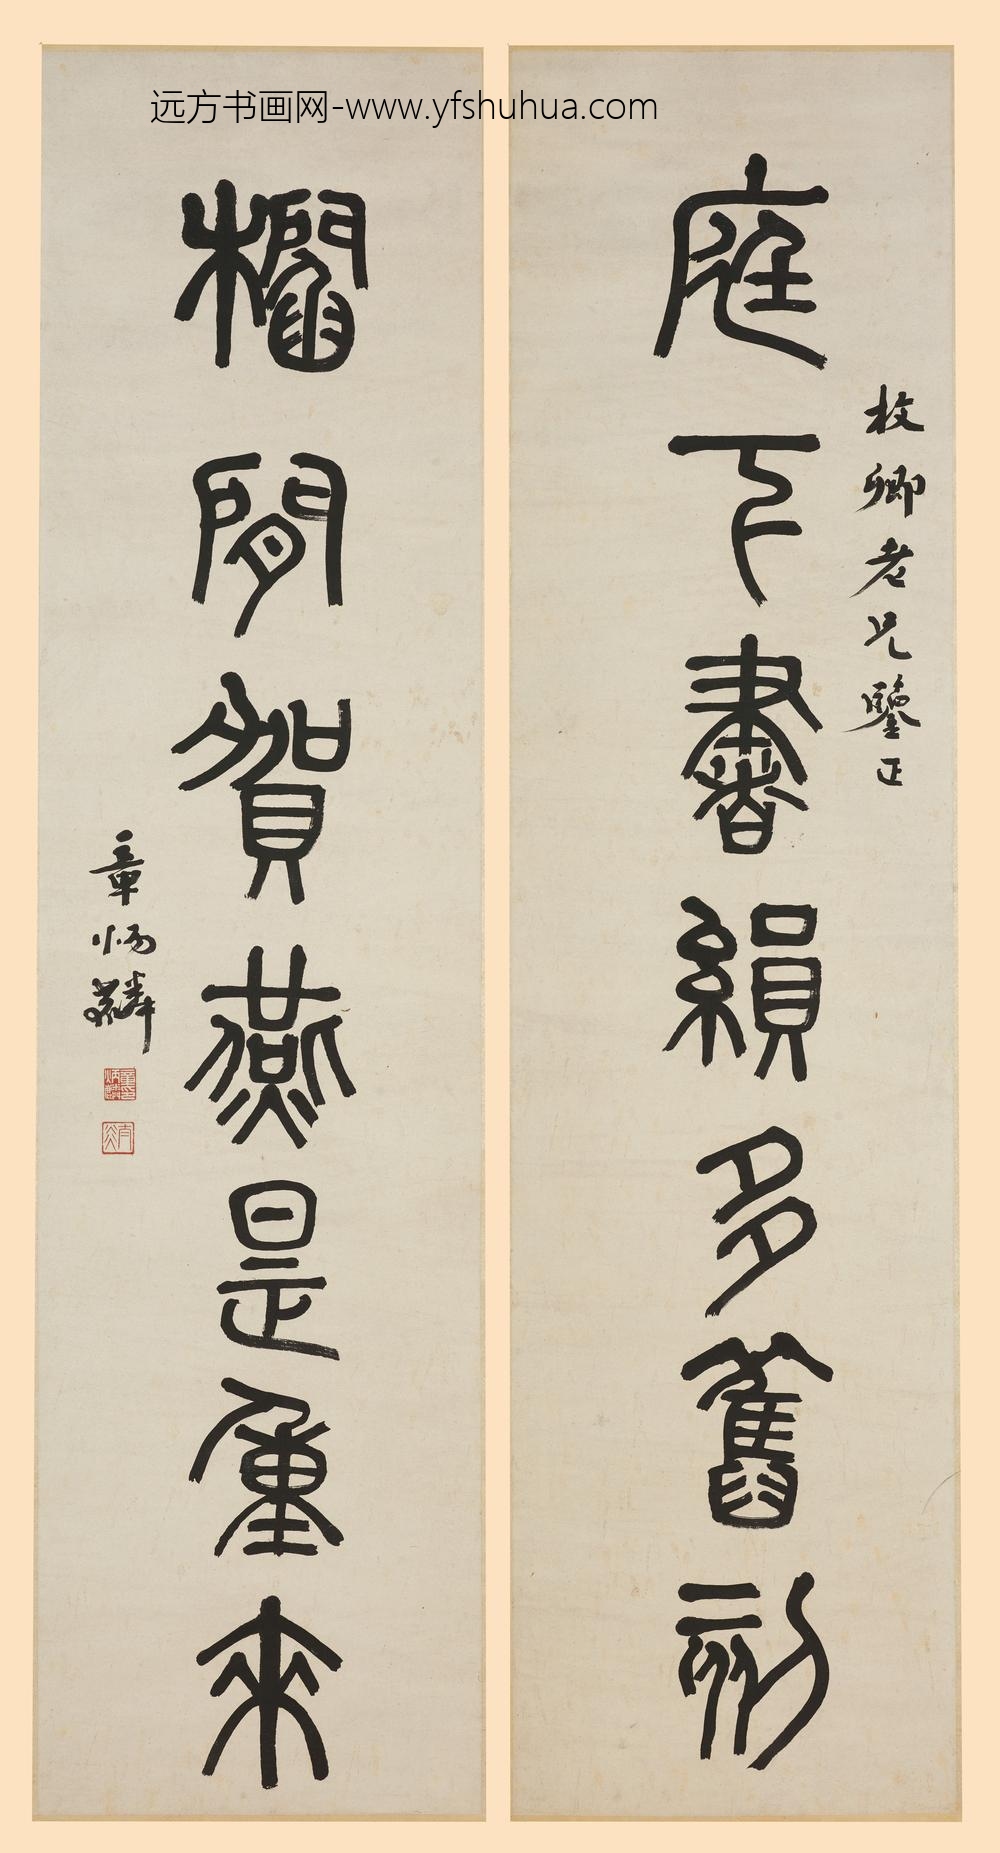 远方书画网-www.yfshuhua.com
庭下書縜多舊刻
枚卿老兄鑒正
櫩間賀燕是重來
章炳麟
章印炳麟
太炎